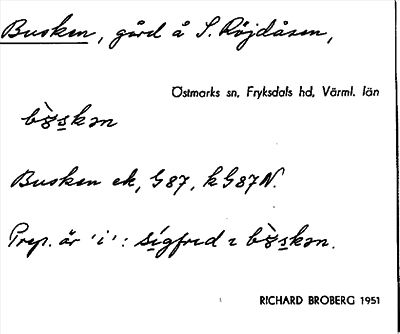 Busken, gård å S. Röjdåsen,
Östmarks sn, Fryksdals hd, Värml. län
bòskǝn
Busken ek, G87, kG87N.
Prep. är 'i': sigfrid i bòskǝn.
RICHARD BROBERG 1951